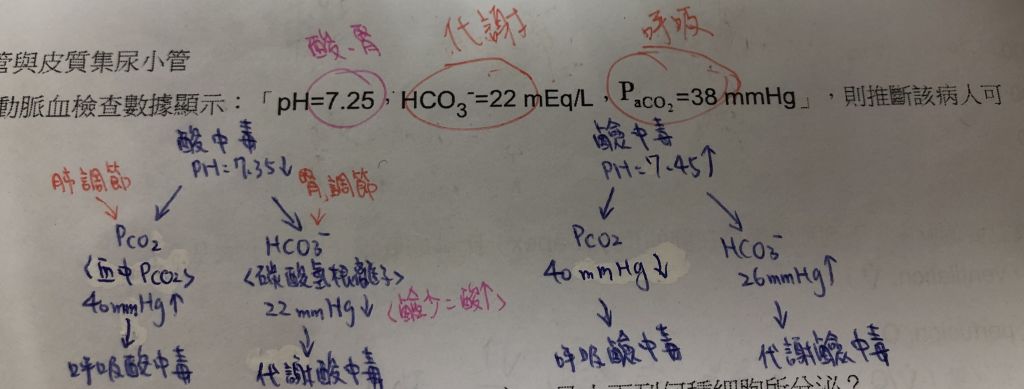 酸.腎 代謝 呼吸
管與皮質集尿小管
動脈血檢查數據顯示：「pH=7.25，HCO3⁻=22 mEq/L，PaCO2=38 mmHg」，則推斷該病人可
酸中毒 鹼中毒
PH=7.35↓ PH=7.45↑
肺調節 腎調節
PCO2 HCO3⁻ PCO2 HCO3⁻
<血中PCO2> <碳酸氫根離子> 40 mmHg↓ 26mmHg↑
40mmHg↑ 22 mmHg↓ <鹼少=酸↑>
呼吸酸中毒 代謝酸中毒 呼吸鹼中毒 代謝鹼中毒